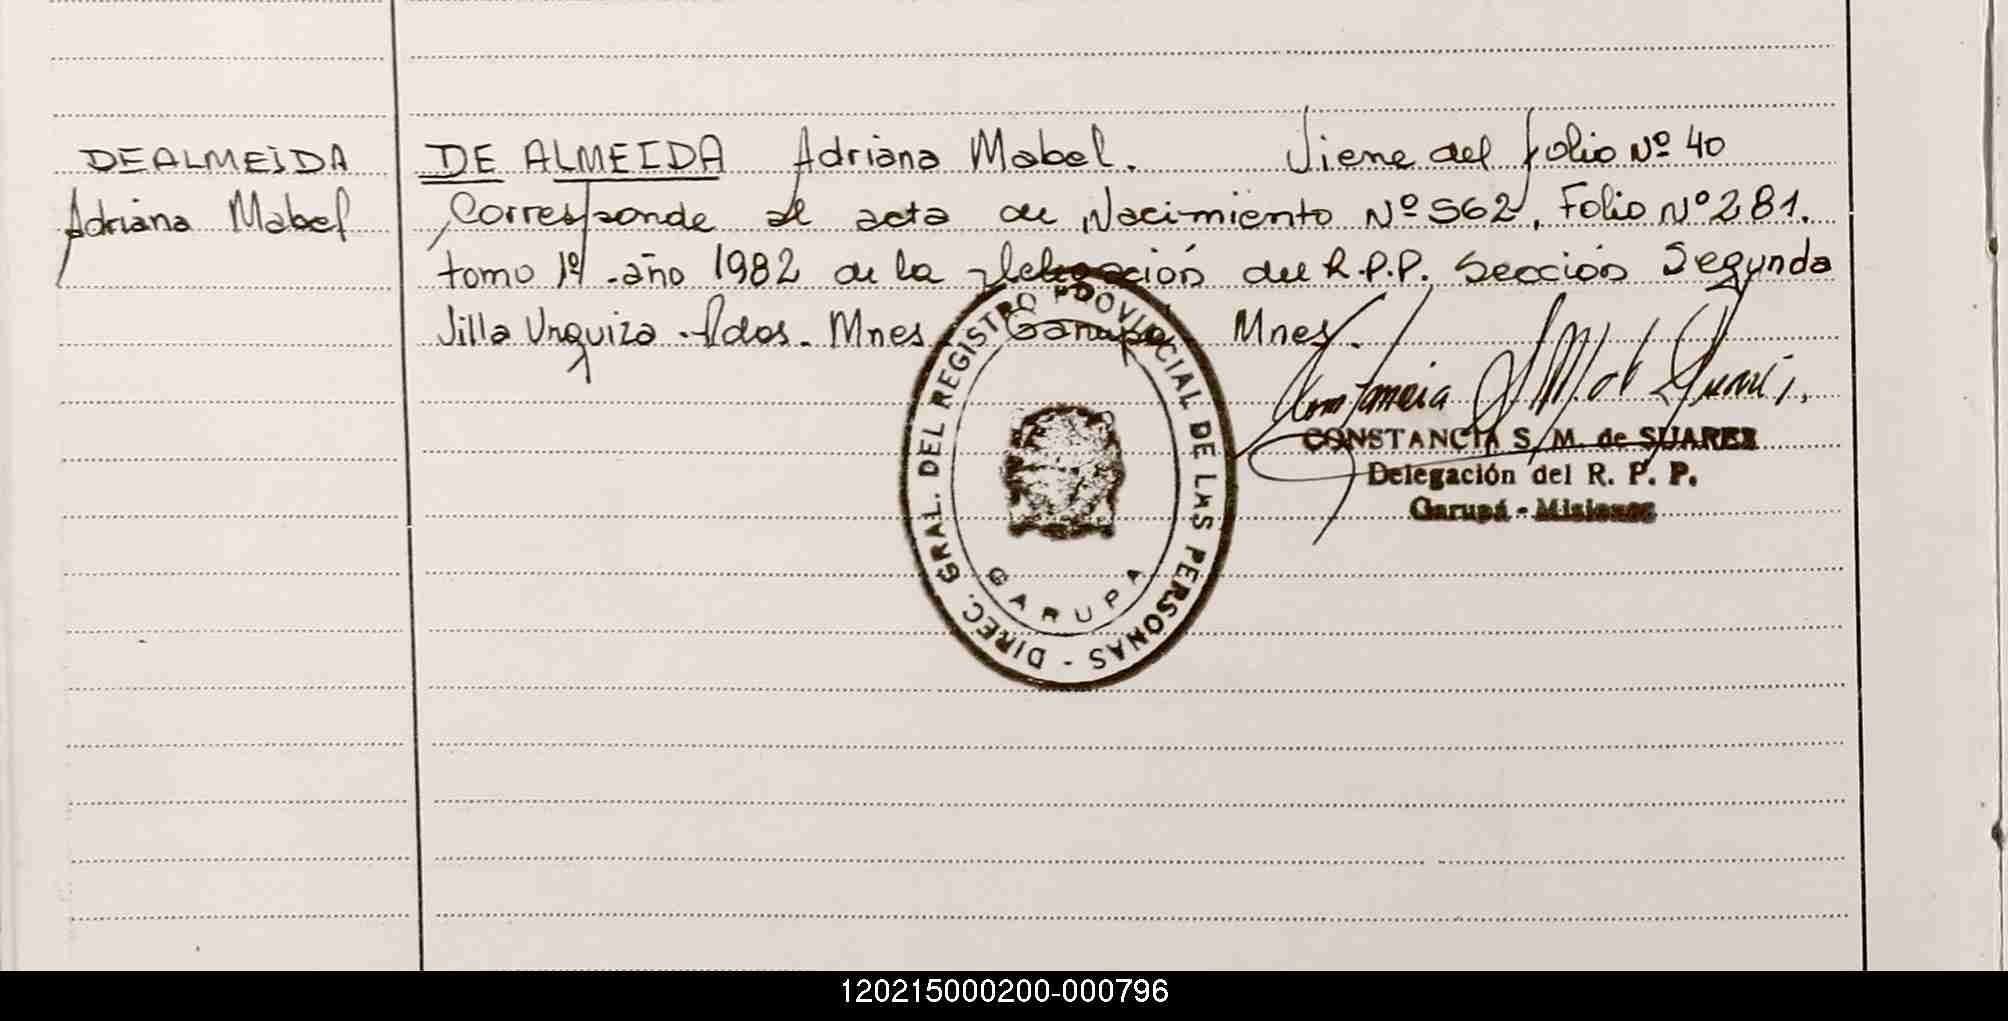 DE ALMEIDA
Adriana Mabel
DE ALMEIDA Adriana Mabel. Viene del folio Nº 40
Corresponde al acta de Nacimiento Nº 562, Folio Nº 281.
tomo 1º. año 1982 de la Delegación del R.P.P. Sección Segunda
Villa Urquiza - Pdas. Mnes Garupá Mnes.
CONSTANCIA S. M. de SUAREZ
Delegación del R. P. P.
Garupá - Misiones
DIREC. GRAL. DEL REGISTRO PROVINCIAL DE LAS PERSONAS -
GARUPA
120215000200-000796